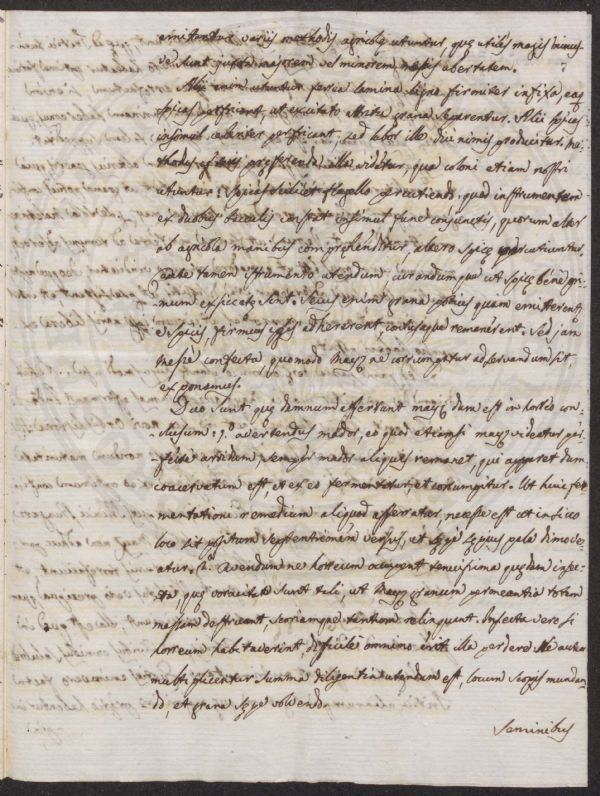 emittantur variis methodis agricolę utuntur, quę utiles magis minus-
ve sunt juxta majorem vel minorem messis ubertatem.
Alii enim utuntur ferrea lamina ligno firmiter infixa, eaq
spicas perfricant, ut excitato attritu grana separentur. Alii spicas
insimul celeriter perfricant, sed labor ille diu nimis producitur. Me-
thodus ceteris pręferenda illa videtur, qua coloni etiam nostri
utuntur: spicas scilicet flagello percutiendi, quod instrumentum
ex duobus baculis constat insimul fune conjunctis, quorum alter
ab agricola manibus comprehenditur, altero spicę percutiuntur.
Caute tamen istrumento utendum, curandumque ut spicę bene pri-
mum exsiccatę sint. Secus enim grana potius quam emitterent
e spicis, firmius ipsis adhererent, contusaque remanerent. Sed jam
messe confecta, quomodo Mays ne corrumpatur adservandum sit,
exponamus.
Duo sunt quę damnum afferunt mays dum est in horreo con-
clusum: 1.º avertendus mador, eo quod etiamsi mays videatur per-
fecte aridum, semper mador aliquis remanet, qui apparet dum
coacervatum est, et ex eo fermentatur, et corrumpitur. Ut huic fer-
mentationi remedium aliquod afferatur, necesse est ut in sicco
loco sit positum septentrionem versus, et sępe sępius pala dimove-
atur. 2.º Avendum ne horreum occupent tenuissima quędam insec-
ta, quę voracitate sunt tali, ut mays granum permeantia totam
messem destruant, scoriamque tantum relinquant. Insecta vero si
horreum habitaverint, difficile omnino erit illa perdere. Ne autem
multiplicentur summa diligentia utendum est, locum scopis mundan-
do, et grana sępe volvendo.
Seminibus